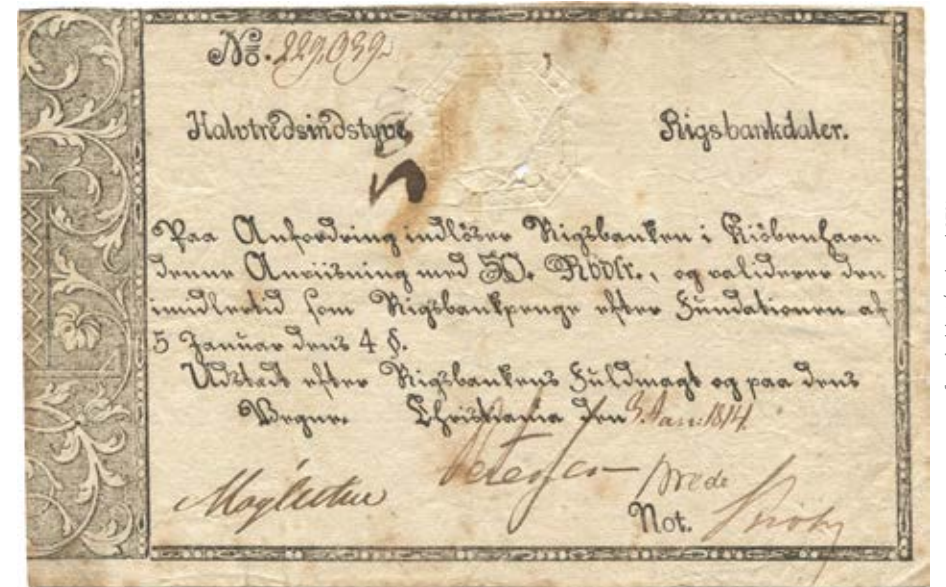 No. 229,039.
Halvtredsindstyve Rigsbankdaler.
Paa Anfordring indlöser Rigsbanken i Kiöbenhavn
denne Anviisning med 50. Rbdlr., og validerer den
imidlertid som Rigsbankpenge efter Fundationen af
5 Januar dens 4 §.
Udstædt efter Rigsbankens Fuldmagt og paa dens
Vegne. Christiania den 3. Jan: 1814.
Not.